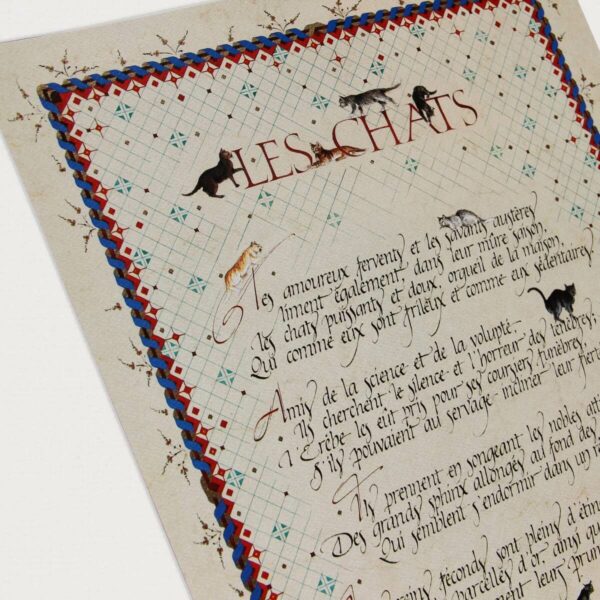 LES CHATS
Les amoureux fervents et les savants austères
Aiment également, dans leur mûre saison,
les chats puissants et doux, orgueil de la maison,
Qui comme eux sont frileux et comme eux sédentaires
Amis de la science et de la volupté
Ils cherchent le silence et l'horreur des ténèbres,
l'Erèbe les eut pris pour ses coursiers funèbres
S'ils pouvaient au servage incliner leur fierté
Ils prennent en songeant les nobles atti
Des grands sphinx allongés au fond des
Qui semblent s'endormir dans un
reins féconds sont pleins d'ét
parcelles d'or ainsi qu
ment leurs prun